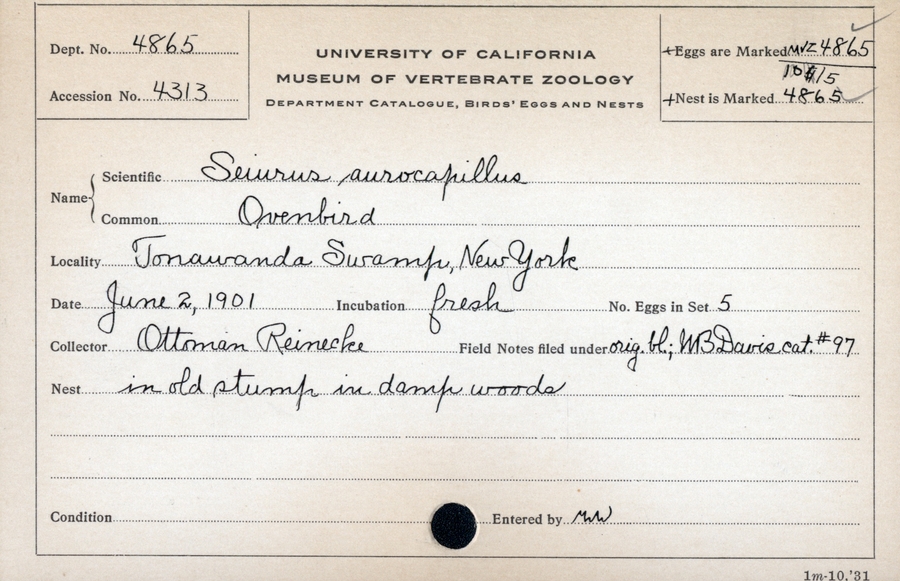 Dept. No. 4865
Accession No. 4313
UNIVERSITY OF CALIFORNIA
MUSEUM OF VERTEBRATE ZOOLOGY
DEPARTMENT CATALOGUE, BIRDS' EGGS AND NESTS
+Eggs are Marked MVZ 4865
10$15
+Nest is Marked 4865
Name
Scientific Seiurus aurocapillus
Common Ovenbird
Locality Tonawanda Swamp, New York
Date June 2, 1901 Incubation fresh No. Eggs in Set 5
Collector Ottoman Reinecke Field Notes filed under orig. bl.; WB Davis cat. #97
Nest in old stump in damp woods
Condition Entered by
1m-10,'31